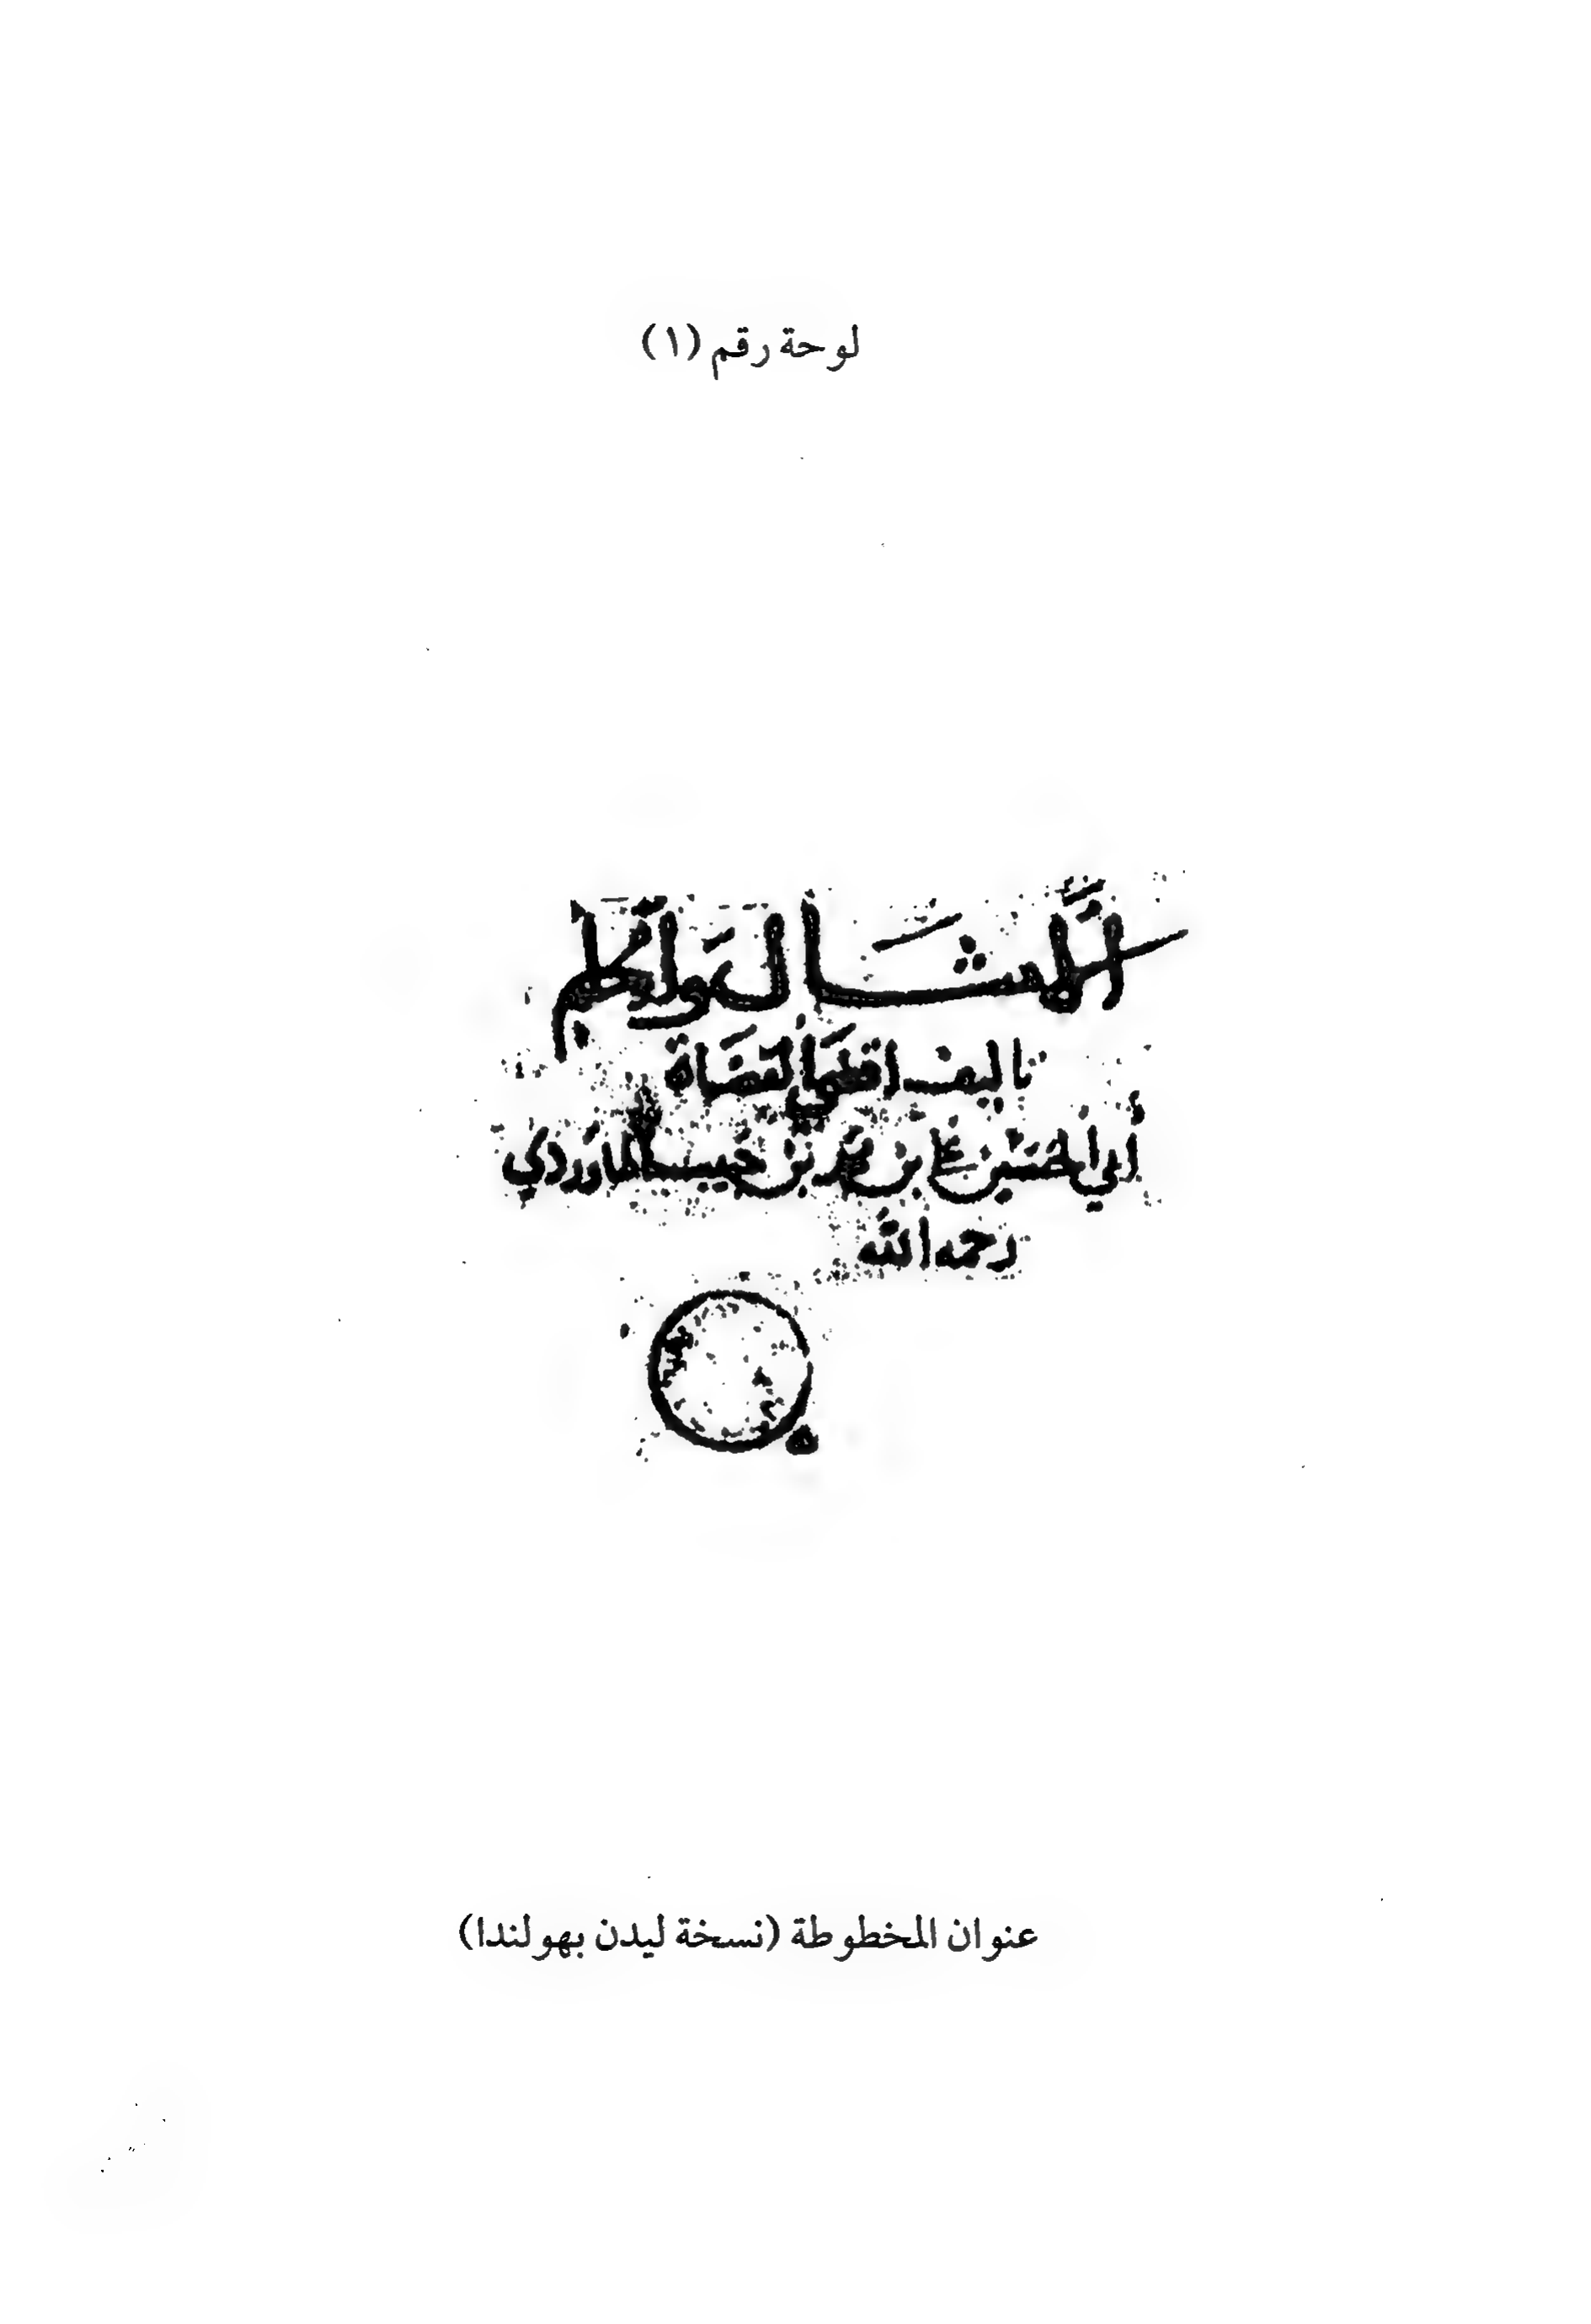 لوحة رقم (١)
الأمثال والحكم
تاليف اقضى القضاة
أبي الحسن علي بن محمد بن حبيب الماوردي
رحمه الله
عنوان المخطوطة (نسخة ليدن بهولندا)